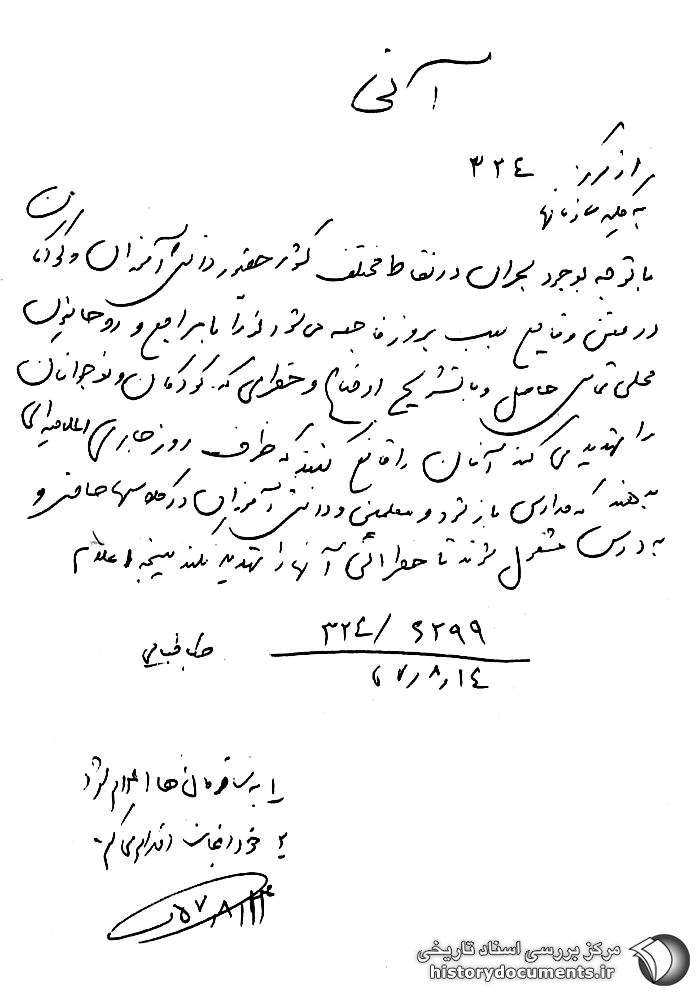 آنی
از مرکز ۳۲٤
به کلیه سازمانها
با توجه بوجود بحران در نقاط مختلف کشور حضور دانش آموزان و کودکان
در متن وقایع سبب بروز فاجعه می شود فوراً با مراجع و روحانیون
محلی تماس حاصل و با تشریح اوضاع و خطراتی که کودکان و نوجوانان
را تهدید می کند آنان را قانع کنند که ظرف روز جاری اعلامیه ای
بدهند که مدارس باز گردد و معلمین و دانش آموزان در کلاسها حاضر و
به درس مشغول شوند تا خطراتی آنها را تهدید نکند نتیجه اعلام
طباطبایی
۳۲٤/۶۲۹۹
۵۷٫۸٫۱٤
۱ـ به سازمان ها اعلام شود
۲ـ خود اقدام می کنم
۵۷٫۸٫۱۴
مرکز بررسی اسناد تاریخی
historydocuments.ir